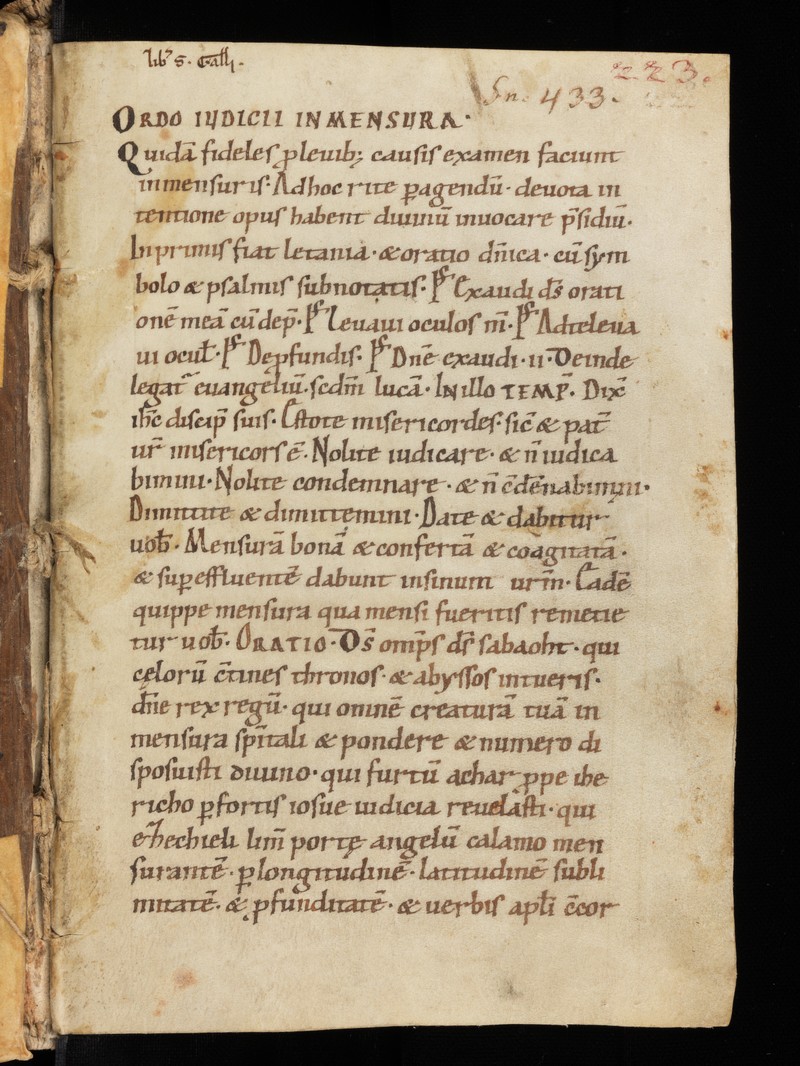 lib᷒ S. Galli.
Sn. 433.
223.
ORDO IUDICII IN MENSURA.
Quidā fideles ꝓ leuib; causis examen faciunt
in mensuris. Ad hoc rite ꝑagendū. deuota in
tentione opus habent diuinū inuocare p̄sidiū.
In primis fiat letania. & oratio dn̄ica. cū sym
bolo & psalmis subnotatis. Ps̄ Exaudi ds̄ orati
onē meā cū dep̄. Ps̄ Leuaui oculos m̄. Ps̄ Ad te leua
ui ocul̄. Ps̄ De ꝓfundis. Ps̄ Dn̄e exaudi. ii. Deinde
legat᷑ euangeliū. scdm̄ lucā. IN illo TEMP̄. Dix̄
ih̄c discip̄ suis. Estote misericordes. sic̄ & pat̄
ur̄ misericors ē. Nolite iudicare. & n̄ iudica
bimini. Nolite condemnare. & n̄ c̄dēnabimini.
Dimittite & dimittemini. Date & dabitur
uob̄. Mensurā bonā & confertā & coagitatā.
& suꝑeffluentē dabunt in sinum ur̄m. Eadē
quippe mensura qua mensi fueritis remetie
tur uob̄. ORATIO. Os̄ omp̄s ds̄ sabaoht. qui
cęlorū c̄tines thronos. & abyssos intueris.
dn̄e rex regū. qui omnē creaturā tuā in
mensura sp̄itali & pondere & numero di
sposuisti diuino. qui furtū achar ꝓpe ihe
richo ꝑ fortis iosue iudicia reuelasti. qui
ezhechieli lim̄ portę angelū calamo men
surantē. ꝑ longitudinē. latitudinē subli
mitatē. & ꝓfunditatē. & uerbis apl̄i c̄cor